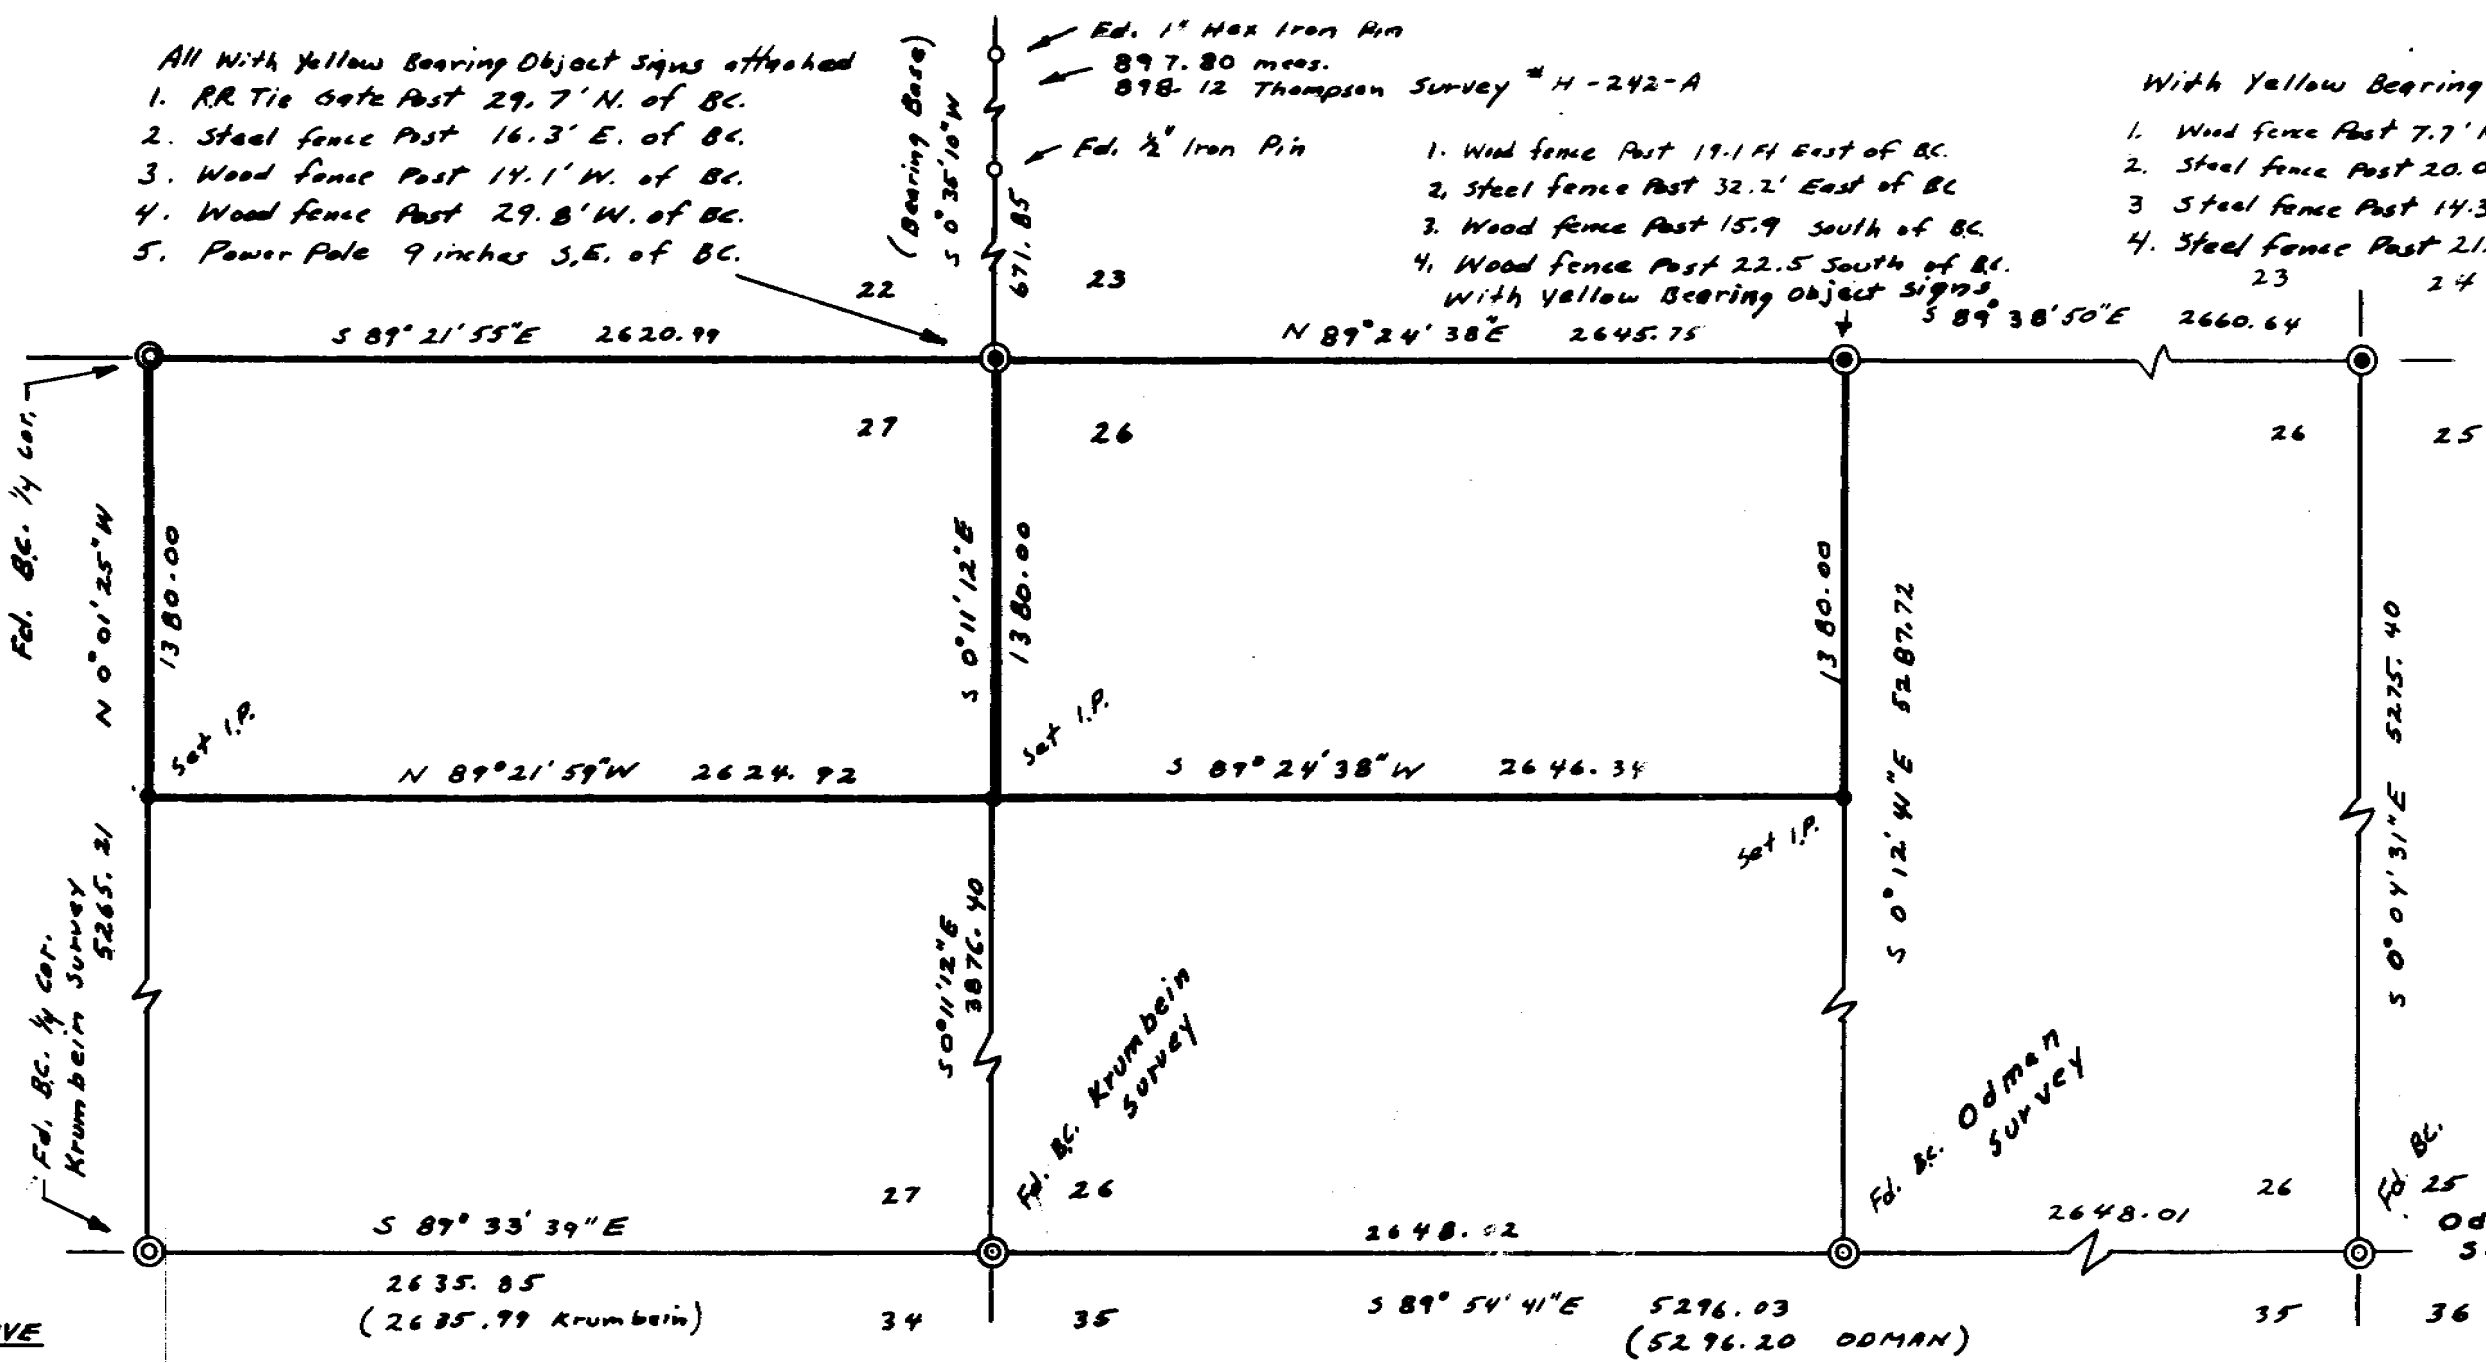 All With Yellow Bearing Object Signs attached
1. RR Tie Gate Post 29.7' N. of BC.
2. Steel fence Post 16.3' E. of BC.
3. Wood fence Post 14.1' W. of BC.
4. Wood fence Post 29.8' W. of BC.
5. Power Pole 9 inches S.E. of BC.
(Bearing Base)
S 0° 35' 10" W
671.85
Fd. 1" Hex Iron Pin
897.80 meas.
898.12 Thompson Survey # H-242-A
Fd. 1/2" Iron Pin
1. Wood fence Post 19.1 Ft East of BC.
2. Steel fence Post 32.2' East of BC
3. Wood fence Post 15.9 South of BC.
4. Wood fence Post 22.5 South of BC.
With Yellow Bearing Object Signs
With Yellow Bearing
1. Wood fence Post 7.7'
2. Steel fence Post 20.0
3 Steel fence Post 14.3
4. Steel fence Post 21.
22
23
23
24
S 89° 21' 55" E 2620.99
N 89° 24' 38" E 2645.75
S 89° 38' 50" E 2660.64
27
26
26
25
Fd. BC. 1/4 cor.
N 0° 01' 25" W
1380.00
S 0° 11' 12" E
1380.00
1380.00
S 0° 12' 41" E 5287.72
S 0° 04' 31" E 5275.40
Set I.P.
Set I.P.
Set I.P.
N 89° 21' 59" W 2624.92
S 89° 24' 38" W 2646.34
5265.21
Fd. BC. 1/4 cor.
Krumbein Survey
S 0° 11' 12" E
3876.40
Fd. BC. Krumbein
Survey
Fd. BC. Odman
Survey
Fd BC.
Od
S
27
26
26
25
S 89° 33' 39" E
2648.02
2648.01
2635.85
(2635.99 Krumbein)
34
35
S 89° 54' 41" E 5296.03
(5296.20 ODMAN)
35
36
VE